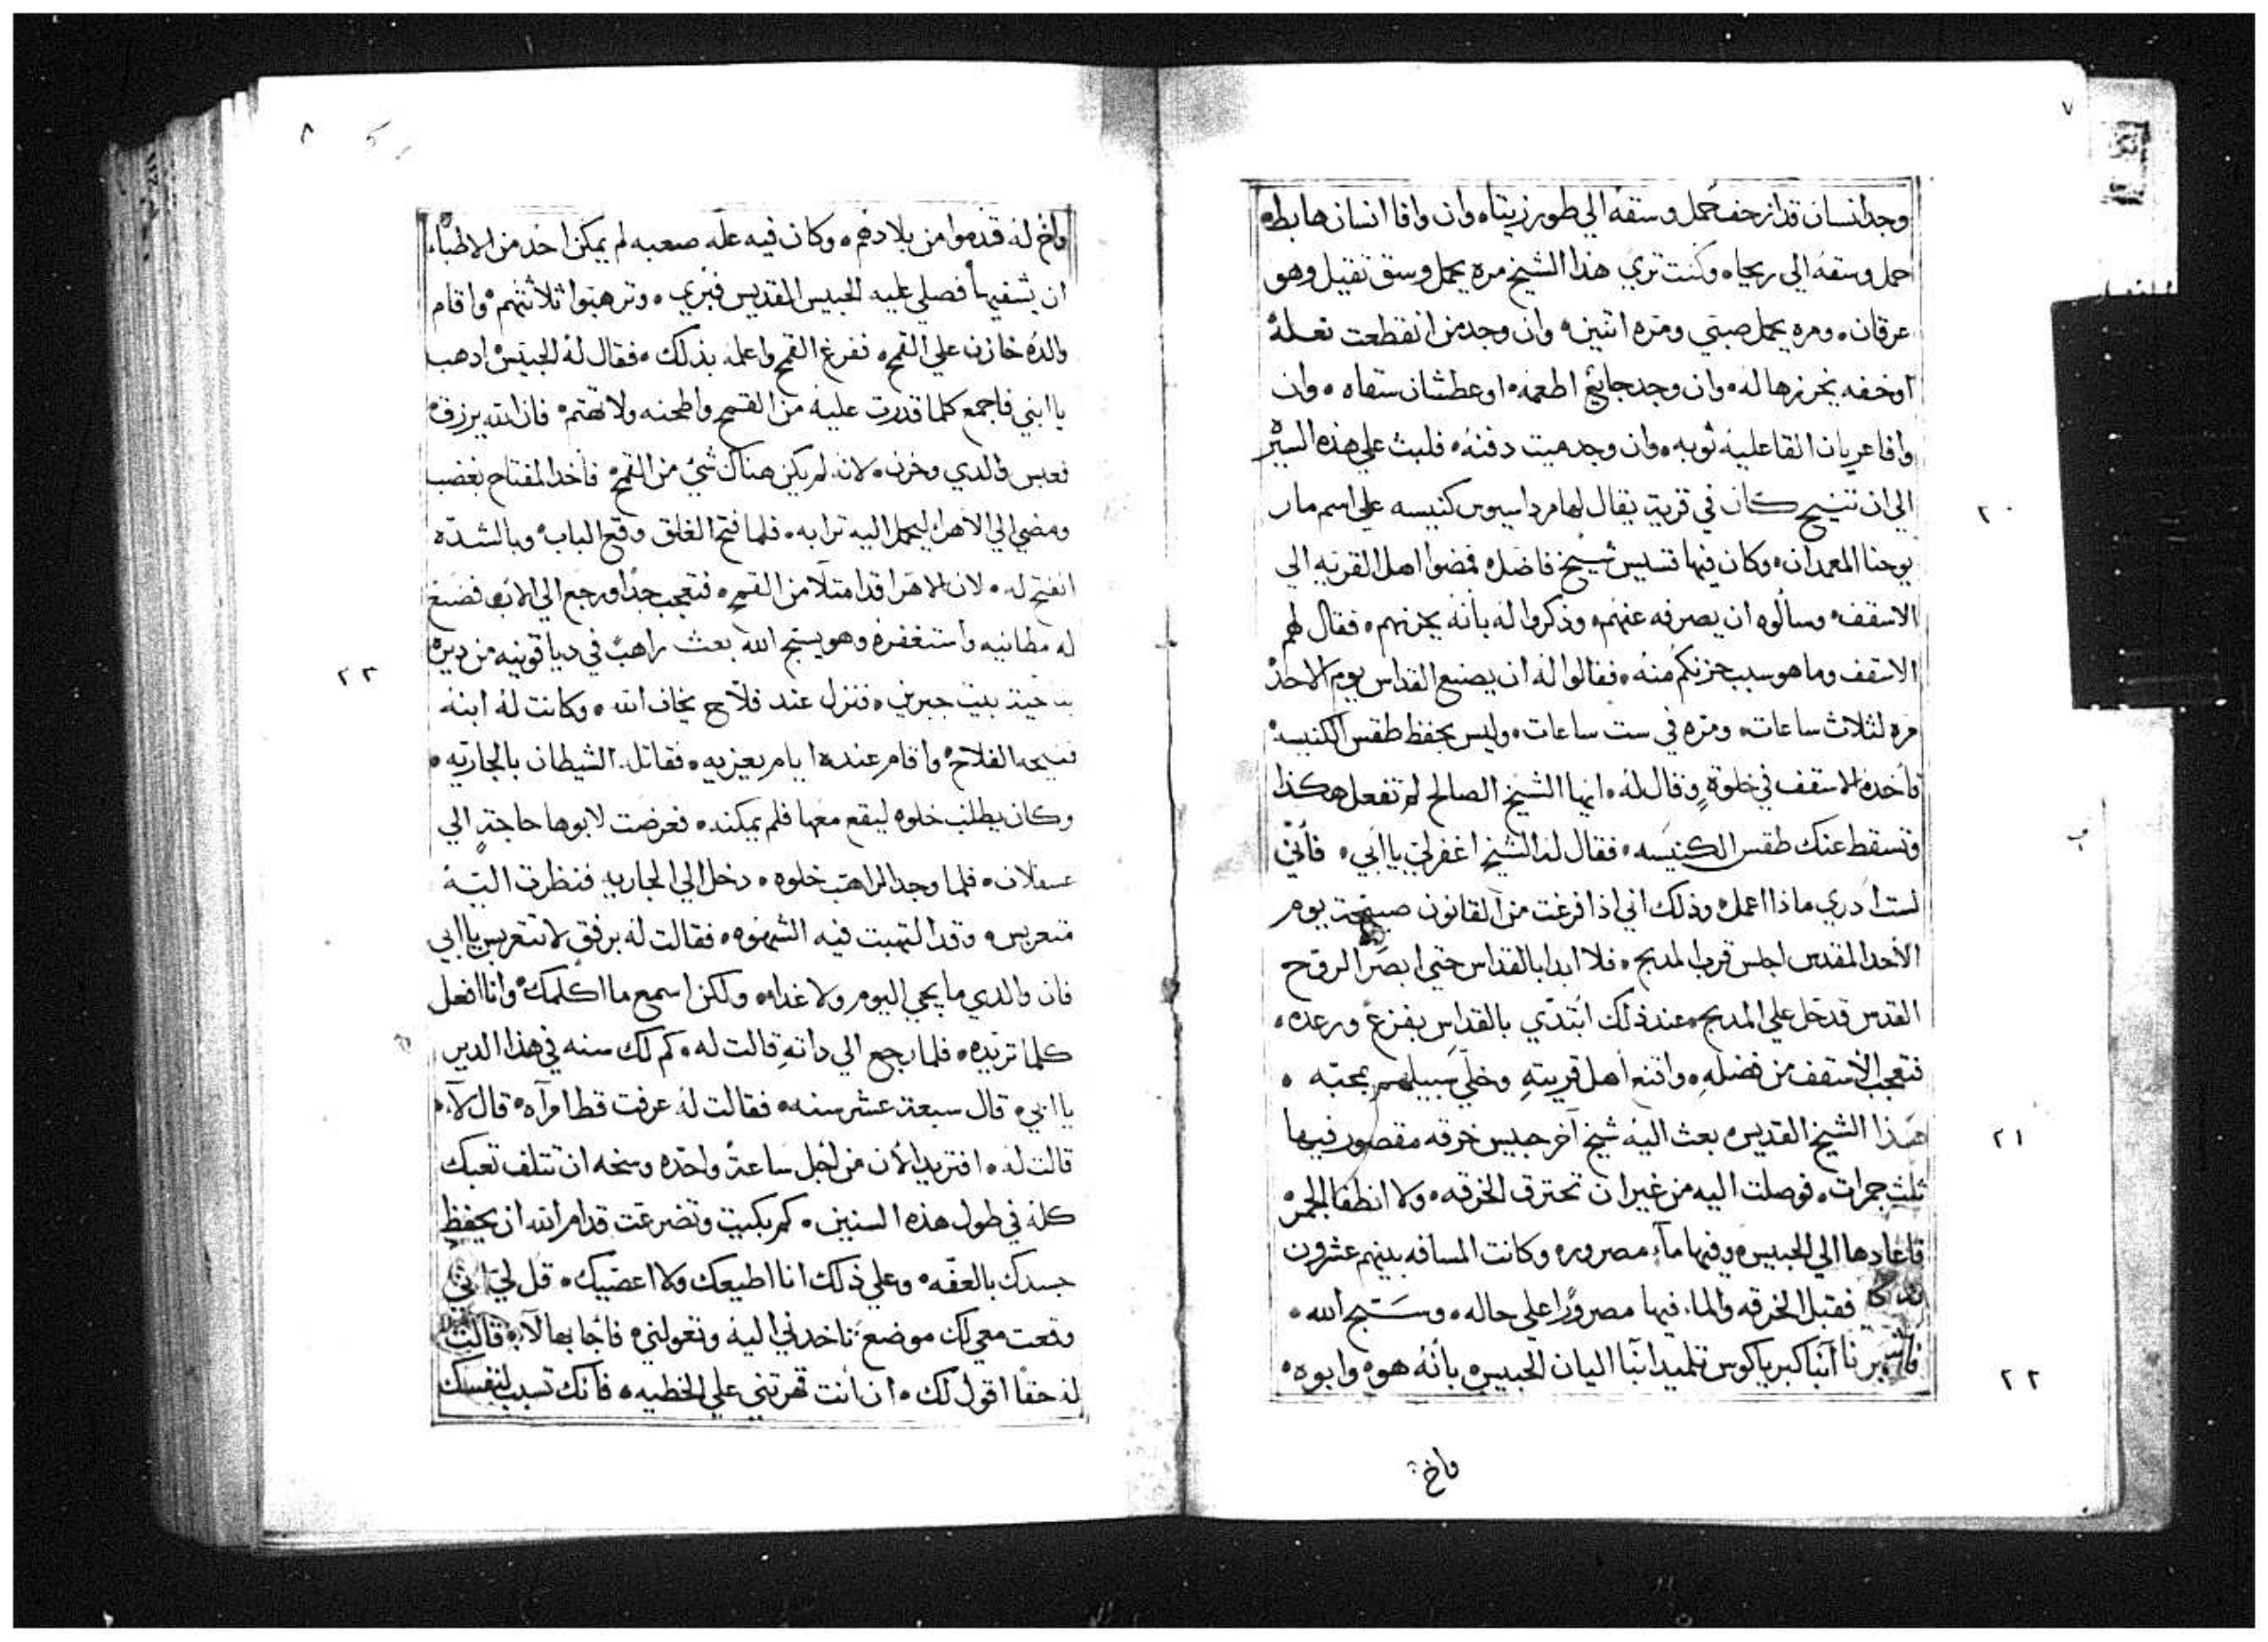 ٧
وجد انسان قد ازحف حمل وسقه الي طور زيتاه وان وافا انسان هابط
حمل وسقه الي ريحاه وكنت تري هذا الشيخ مره يحمل وسق ثقيل وهو
عرقان ومره يحمل صبي ومره اثنين وان وجد من انقطعت نعله
او خفه يخرزها له وان وجد جايع اطعمه او عطشان سقاه وان
وافا عريان القا عليه ثوبه وان وجد ميت دفنه فلبث علي هذه السير
٢٠ الي ان تنيح كان في قرية يقال لها مرداسيوس كنيسه علي اسم مار
يوحنا المعمدان وكان فيها قسيس شيخ فاضل فمضوا اهل القريه الي
الاسقف وسالوه ان يصرفه عنهم وذكروا له بانه يحزنهم فقال لهم
الاسقف وما هو سبب حزنكم منه فقالوا له ان يصنع القداس يوم الاحد
مره لثلاث ساعات ومره في ست ساعات وليس يحفظ طقس الكنيسه
فاخده الاسقف في خلوة وقال له ايها الشيخ الصالح لم تفعل هكذا
وتسقط عنك طقس الكنيسه فقال له الشيخ اغفر لي يا ابي فاني
لست ادري ماذا اعمل وذلك اني اذا فرغت من القانون صبيحت يوم
الاحد المقدس اجلس قرب المدبح فلا ابدا بالقداس حتي ابصر الروح
القدس قد حل علي المدبح عند ذلك ابتدي بالقداس بفزع ورعده
فتعجب الاسقف من فضله واقنع اهل قريته وخلي سبيلهم بمحبه
٢١ هذا الشيخ القديس بعث اليه شيخ آخر حبيس خرقه مقصور فيها
ثلث جمرات فوصلت اليه من غير ان تحترق الخرقه ولا انطفا الجمر
فاعادها الي الحبيس وفيها مآء مصروره وكانت المسافه بينهم عشرون
فقبل الخرقه والماء فيها مصرورًا علي حاله وسبح الله
٢٢ آنبا كيرياكوس تلميد انبا اليان الحبيس بانه هو وابوه
واخ
٨
واخ له قدموا من بلادهم وكان فيه عله صعبه لم يمكن احد من الاطباء
ان يشفيها فصلي عليه الحبيس القديس فبري وترهبوا ثلاثتهم واقام
والده خازن علي القمح ففرغ القمح واعلمه بذلك فقال له الحبيس ادهب
يا ابني فاجمع كلما قدرت عليه من القمح واطحنه ولا تهتم فان الله يرزق
فعبس والدي وحزن لانه لم يكن هناك شي من القمح فاخد المفتاح بغضب
ومضي الي الاهرا ليحمل اليه ترابه فلما فتح الغلق وقع الباب وبالشده
انفتح له لان الاهرا قد امتلا من القمح فتعجب جدا ورجع الي الاب فصنع
له مطانيه واستغفره وهو يسبح الله
٢٣ بعث راهب في دياقونيه من ديره
ناحية بيت جبرين فنزل عند فلاح يخاف الله وكانت له ابنه
الفلاح واقام عنده ايام يعزيه فقاتل الشيطان بالجاريه
وكان يطلب خلوه ليقع معها فلم يمكنه فعرضت لابوها حاجة الي
عسقلان فلما وجد الراهب خلوه دخل الي الجاريه فنظرت اليه
متعربس وقد التهبت فيه الشهوه فقالت له برفق لا تتعربس يا ابي
فان والدي ما يجي اليوم ولا غداه ولكن اسمع ما اكلمك وانا افعل
كلما تريده فلما رجع الي داته قالت له كم لك سنه في هذا الدير
يا ابي قال سبعة عشر سنه فقالت له عرفت قط امرآه قال لآ
قالت له افتريد الان من اجل ساعة واحده وسخه ان تتلف تعبك
كله في طول هذه السنين كم بكيت وتضرعت قدام الله ان يحفظ
جسدك بالعفه وعلي ذلك انا اطيعك ولا اعصيك قل لي
وقعت معي لك موضع تاخدني اليه وتعولني فاجابها لآ قالت
له حقا اقول لك ان انت قهرتني علي الخطيه فانك تسبب لنفسك